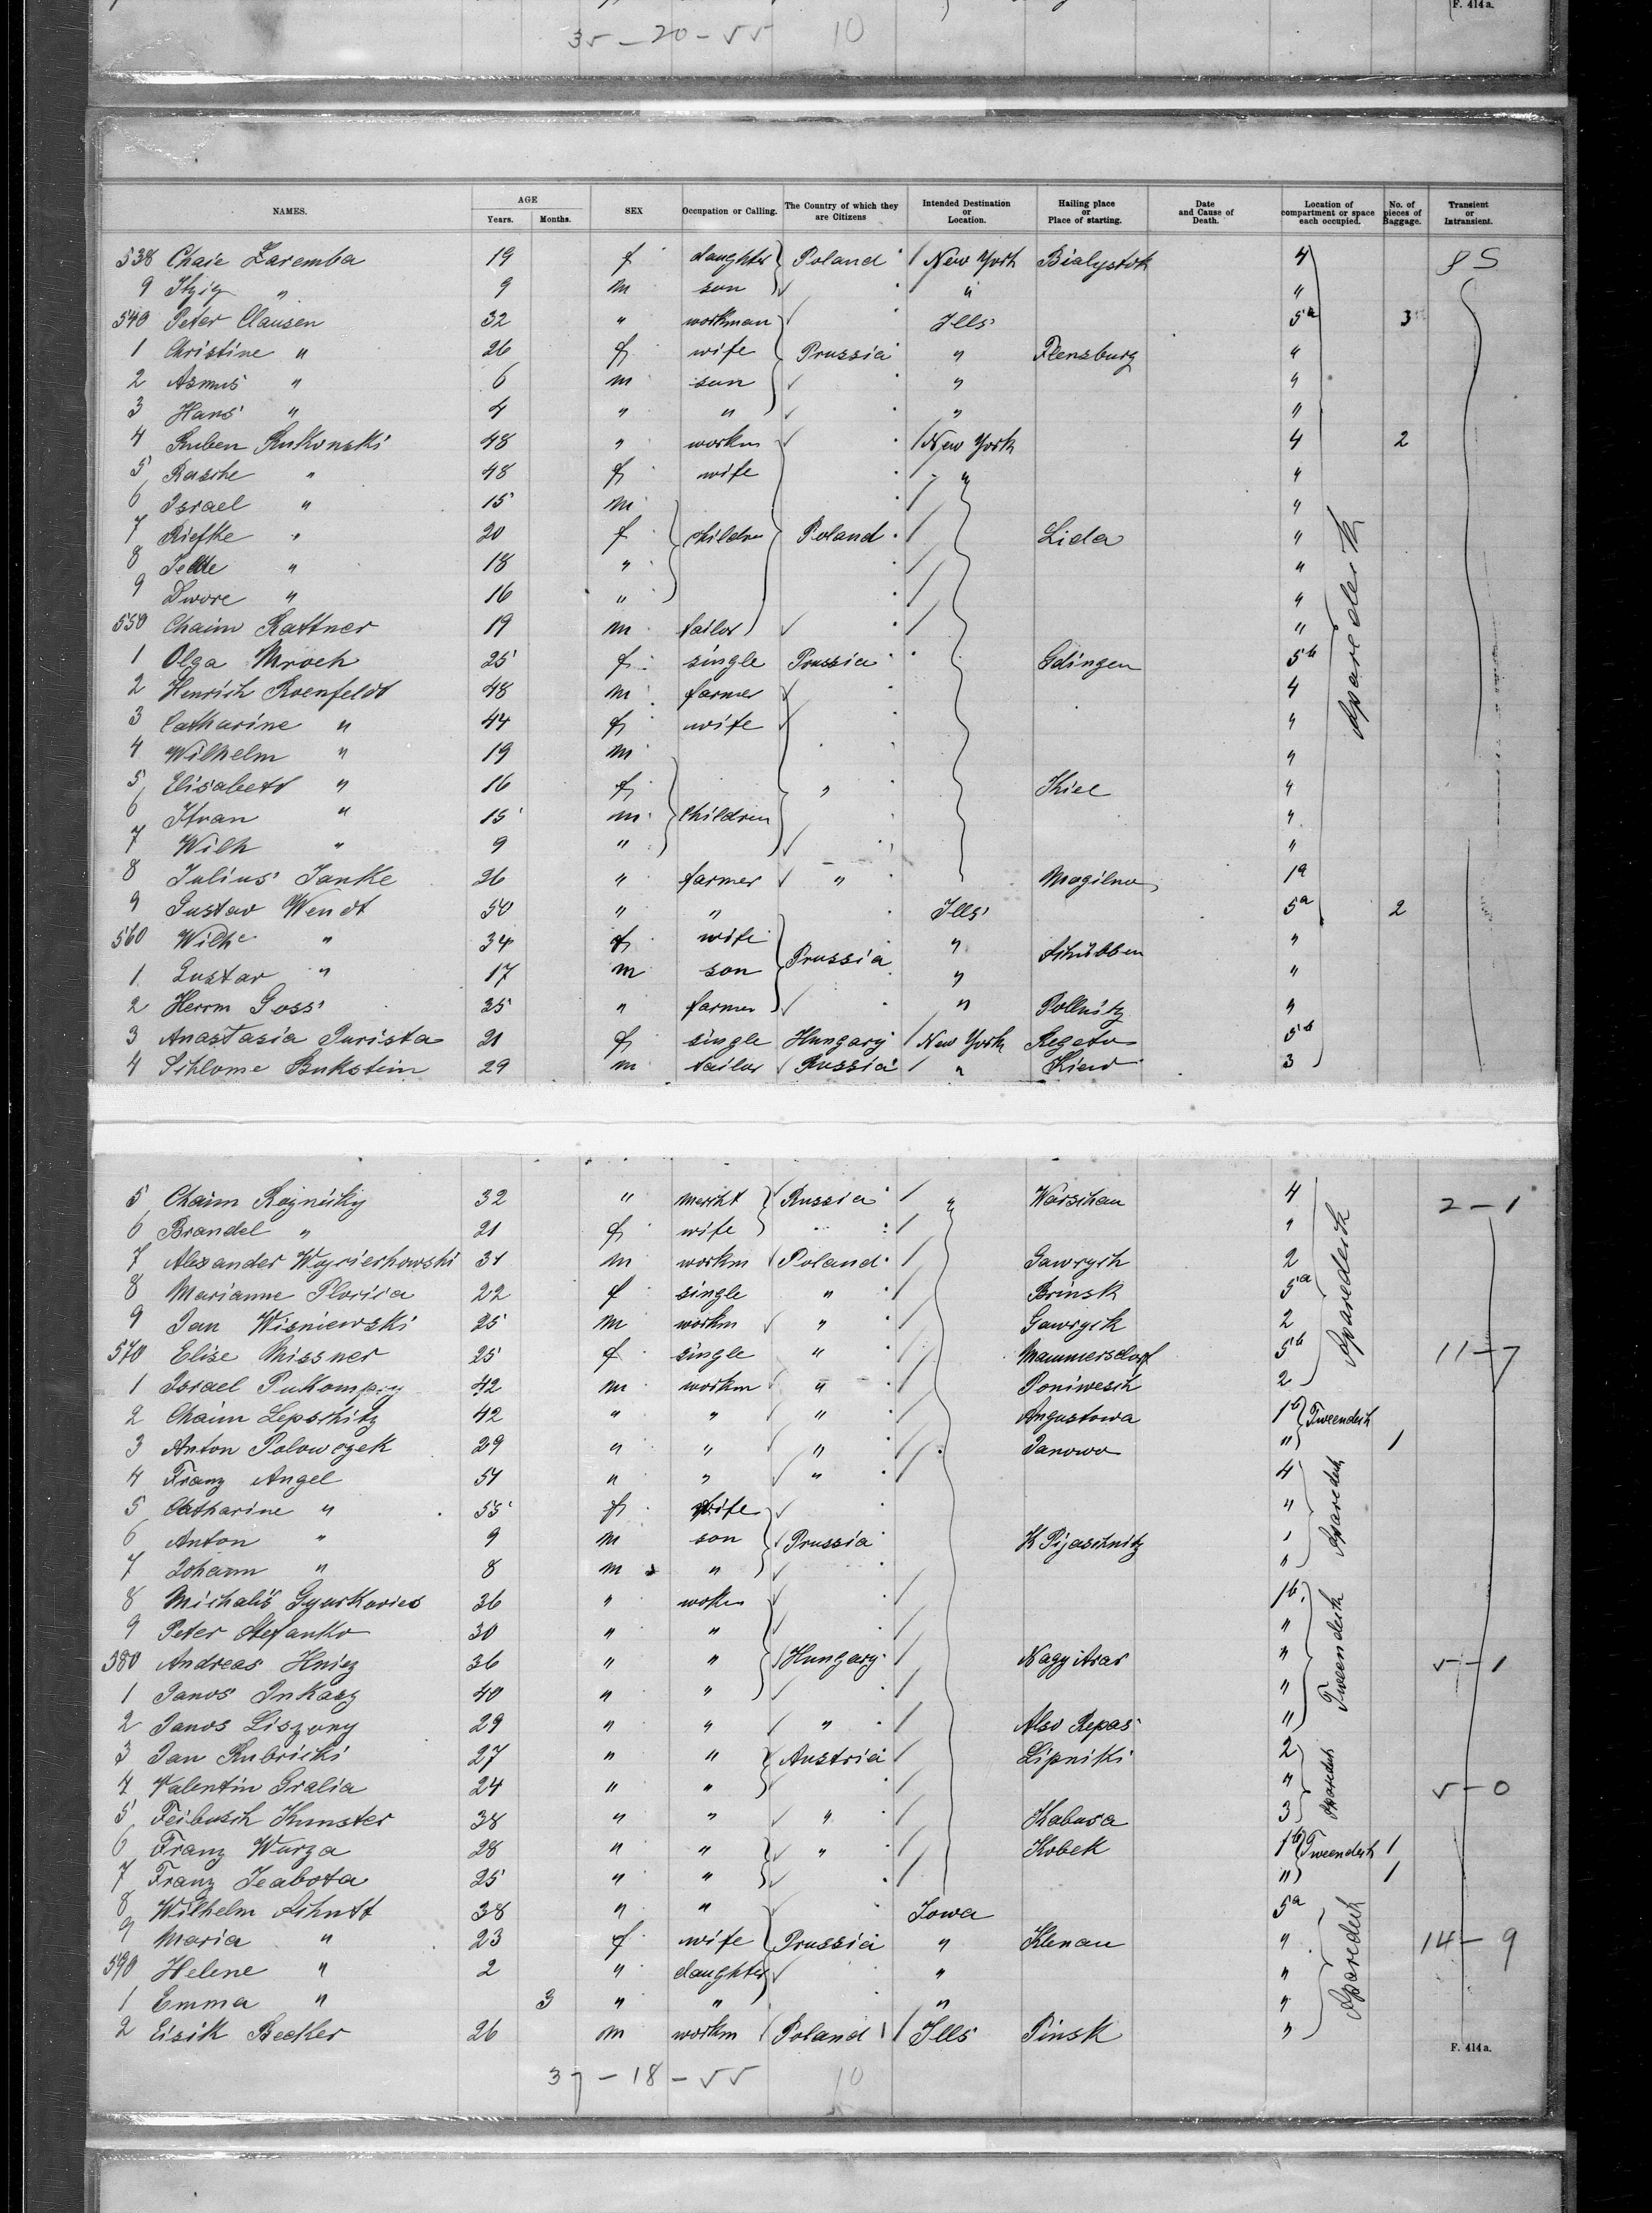 F. 414a.
35-20-55 10
NAMES. AGE Years. Months. SEX Occupation or Calling. The Country of which they are Citizens Intended Destination or Location. Hailing place or Place of starting. Date and Cause of Death. Location of compartment or space each occupied. No. of pieces of Baggage. Transient or Intransient.
538 Chaie Zaremba 19 f daughter Poland New York Bialystok 4
9 Itzig " 9 m son " "
540 Peter Clausen 32 " workman Ills 5a 3
1 Christine " 26 f wife Prussia " Flensburg "
2 Asmus " 6 m son " "
3 Hans " 4 " " " "
4 Ruben Rukonski 48 " workm New York 4 2
5 Rasche " 48 f wife " "
6 Israel " 15 m "
7 Riefke " 20 f children Poland Lida "
8 " 18 " "
9 Dwore " 16 " "
550 Chaim Rattner 19 m tailor "
1 Olga Mroch 25 f single Prussia Gdingen 5b
2 Henrich Roenfeldt 48 m farmer 4
3 Catharine " 44 f wife "
4 Wilhelm " 19 m "
5 Elisabeth " 16 f " Kiel "
6 " 15 m children "
7 Wilh " 9 " "
8 Julius Janke 26 " farmer " Mogilno 1a
9 Gustav Wendt 50 " " Ills 5a 2
560 Wilhe " 34 f wife Prussia " Schübben "
1 Gustav " 17 m son " "
2 Herrm Goss 35 " farmer " Pollnitz "
3 Anastasia Jurista 21 f single Hungary New York Regeto 5b
4 Schlome Bukstein 29 m tailor Russia " Kiew 3
5 Chaim 32 " mercht Russia " Warschau 4 2-1
6 Brandel " 21 f wife "
7 Alexander 31 m workm Poland Gawrych 2
8 Marianne 22 f single " Brinsk 5a
9 Jan Wisniewski 25 m workm " Gawrych 2
570 Elise Missner 25 f single " Mammersdorf 5b 11-7
1 Israel 42 m workm " Poniwesch 2
2 Chaim Lepschitz 42 " " " Augustowa 1b Tweendeck
3 Anton Polowczek 29 " " " Janowo " 1
4 Franz Angel 54 " " " 4
5 Catharine " 55 f wife "
6 Anton " 9 m son Prussia K Pijaschnitz "
7 Johann " 8 m " "
8 Michalis Gyurkovics 36 " workm 1b
9 Peter Stefanko 30 " " "
380 Andreas 36 " " Hungary " 5-1
1 Janos 40 " " "
2 Janos Liszony 29 " " " Also Repas "
3 Jan Rubricki 27 " " Austria Lipniki 2
4 Valentin Gralia 24 " " " 5-0
5 Feibusch Kunster 38 " " " Kabusa 3
6 Franz Wurza 28 " " " Kobek 1b Tweendeck 1
7 Franz Jeabota 25 " " " 1
8 Wilhelm 38 " " Iowa 5a
9 Maria " 23 f wife Prussia " Klenau " 14-9
590 Helene " 2 " daughter " "
1 Emma " 3 " " " "
2 Eisik Becker 26 m workm Poland Ills Pinsk "
Tweendeck
F. 414a.
37-18-55 10